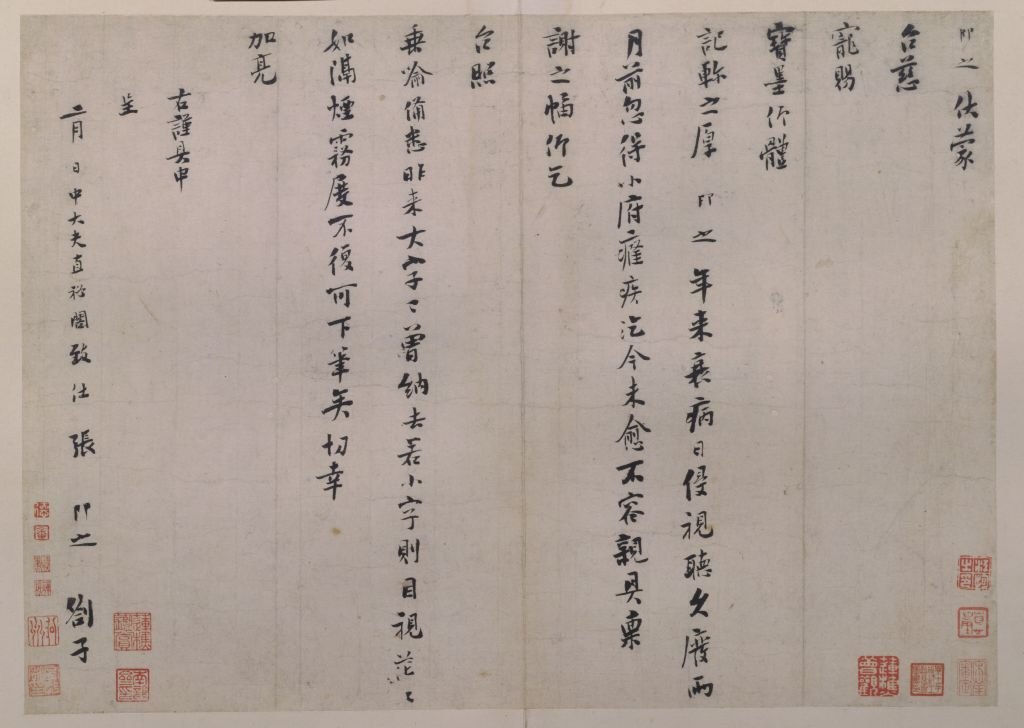 即之 伏蒙
台慈
寵賜
寶墨仰體
記軫之厚 即之 年來衰病日侵視聽久廢兩
月前忽得小府癃疾迄今未愈不容親具稟
謝之幅仰乞
台照
垂喻備悉昨來大字已曾納去若小字則目視茫〻
如隔煙霧屢不復可下筆矣切幸
加亮
右謹具申
呈
二月 日中大夫直祕閣致仕 張 即之 劄子